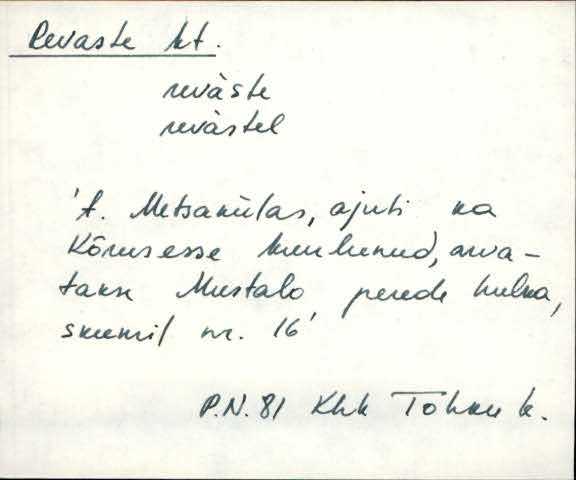 Revaste kt.
revàste
revàstel
't. Metsakülas, ajuti ka
Kõrusesse kuulunud, arva-
takse Mustalo perede hulka,
skeemil nr. 16'
P.N. 81 Khk Tohku k.